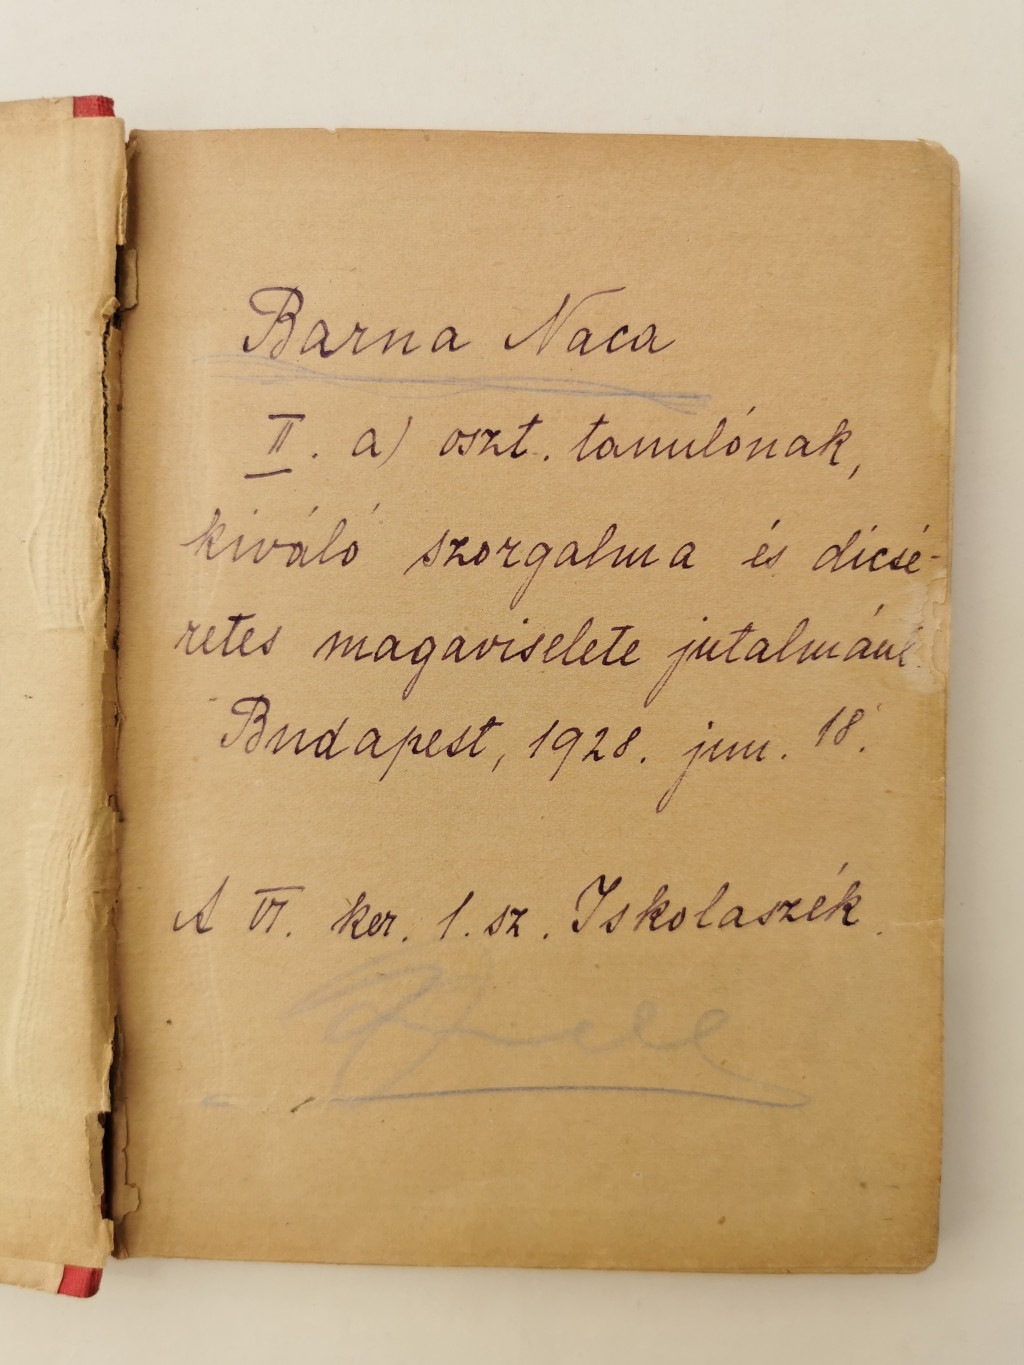 Barna Naca
II. a) oszt. tanulónak,
kiváló szorgalma és dicsé-
retes magaviselete jutalmául.
Budapest, 1928. jun. 18.
A VI. ker. 1. sz. Iskolaszék.